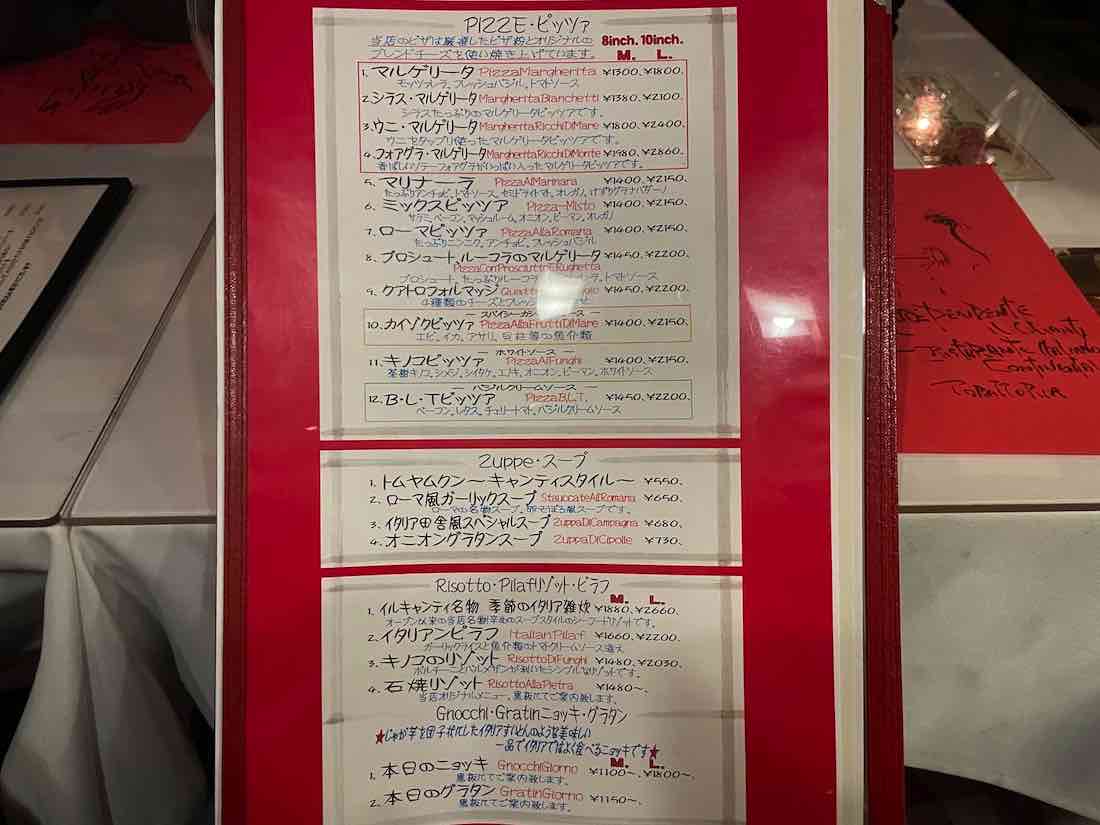 PIZZE・ピッツァ
当店のピザは厳選したピザ粉とオリジナルの
ブレンドチーズを使い焼き上げています。
8inch. 10inch.
M. L.
1. マルゲリータ PizzaMargherita ¥1300、¥1800、
モッツァレラ、フレッシュバジル、トマトソース
2. シラス・マルゲリータ MargheritaBianchetti ¥1380、¥2100、
シラスたっぷりのマルゲリータピッツァです。
3. ウニ・マルゲリータ MargheritaRicchiDiMare ¥1800、¥2400、
ウニをタップリ使ったマルゲリータピッツァです。
4. フォアグラ・マルゲリータ MargheritaRicchiDiMonte ¥1980、¥2860、
香ばしいソテーフォアグラがいっぱい入ったマルゲリータピッツァです。
5. マリナーラ PizzaAlMarinara ¥1400、¥2150、
たっぷりアンチョビ、トマトソース、セミドライトマト、オレガノ、けずりグラナパダーノ
6. ミックスピッツァ Pizza-Misto ¥1400、¥2150、
サラミ、ベーコン、マッシュルーム、オニオン、ピーマン、オレガノ
7. ローマピッツァ PizzaAllaRomana ¥1400、¥2150、
たっぷりニンニク、アンチョビ、フレッシュバジル
8. プロシュート、ルーコラのマルゲリータ ¥1450、¥2200、
PizzaConProsciuttoERughetta
プロシュート、たっぷりルーコラ、トマトソース
9. クアトロフォルマッジ ¥1450、¥2200、
4種類のチーズとフレッシュ
スパイシーガーリックソース
10. カイゾクピッツァ PizzaAllaFruttiDiMare ¥1400、¥2150、
エビ、イカ、アサリ、貝柱等の魚介類
ー ホワイトソース ー
11. キノコピッツァ PizzaAlFunghi ¥1400、¥2150、
茶樹キノコ、シメジ、シイタケ、エノキ、オニオン、ピーマン、ホワイトソース
ー バジルクリームソース ー
12. B・L・Tピッツァ PizzaB.L.T. ¥1450、¥2200、
ベーコン、レタス、チェリートマト、バジルクリームソース
Zuppe・スープ
1. トムヤムクン〜キャンティスタイル〜 ¥550、
2. ローマ風ガーリックスープ StauccateAllRomana ¥650、
ローマの名物スープ。卵そぼろ風スープです。
3. イタリア田舎風スペシャルスープ ZuppaDiCampagna ¥680、
4. オニオングラタンスープ ZuppaDiCipolle ¥730、
Risotto・Pilafリゾット・ピラフ
M. L.
1. イルキャンティ名物 季節のイタリア雑炊 ¥1880、¥2660、
オープン以来の当店名物!辛めのスープスタイルのシーフードリゾットです。
2. イタリアンピラフ ItalianPilaf ¥1660、¥2200、
ガーリックライスと魚介類のトマトクリームソース添え
3. キノコのリゾット RisottoDiFunghi ¥1480、¥2030、
ポルチーニとパルメザンが利いたシンプルなリゾットです。
4. 石焼リゾット RisottoAllaPietra ¥1480〜、
当店オリジナルメニュー。黒板にてご案内致します。
Gnocchi・Gratinニョッキ・グラタン
★じゃが芋を団子状にしたイタリアすいとんのような美味しい
一品でイタリアではよく食べるニョッキです★
M. L.
1. 本日のニョッキ GnocchiGiorno ¥1100〜、¥1800〜、
黒板にてご案内致します。
2. 本日のグラタン GratinGiorno ¥1150〜、
黒板にてご案内致します。